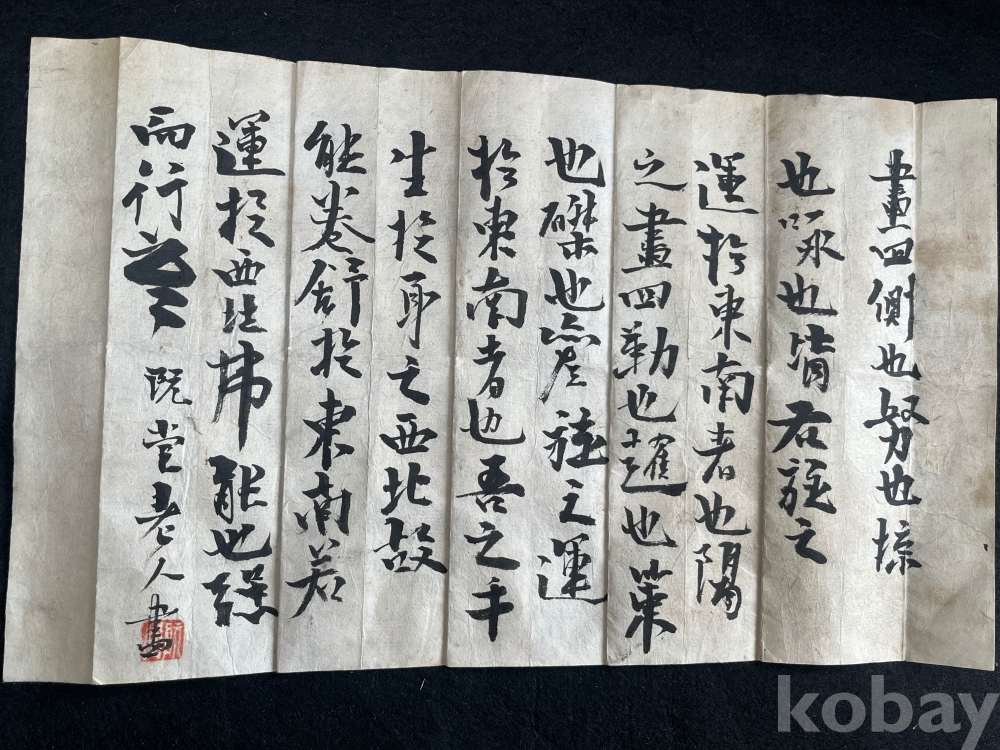 畫四側也努也掠
也啄也皆右旋之
運於東南者也陽
之畫四勒也趯也策
也磔也皆左旋之運
於東南者也吾之手
生於身之西北故
能卷舒於東南若
運於西北弗能也
而行 阮堂老人書
kobay